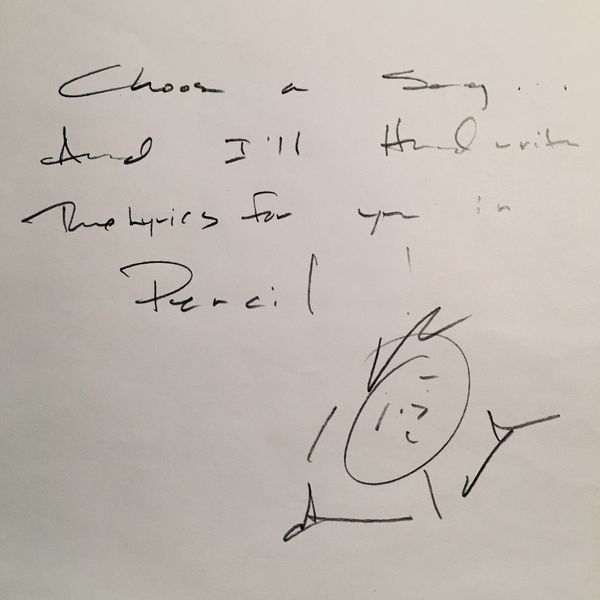 Choose a Song...
And I'll Handwrite
The Lyrics for you in
Pencil!